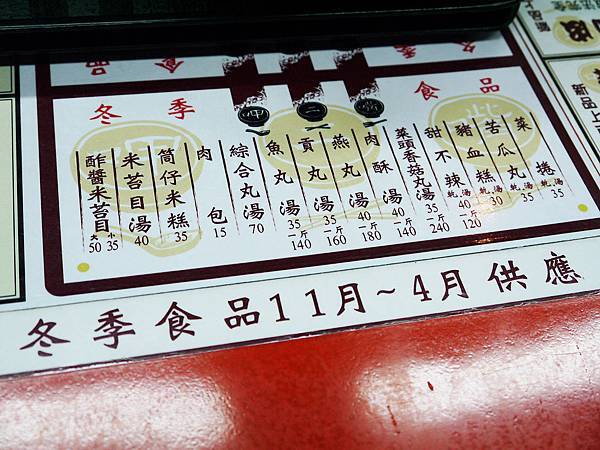 冬季 食品
菜捲 湯 35
苦瓜丸 乾.湯 35
豬血糕 乾.湯 30
甜不辣 乾.湯 40 一斤 120
菜頭香菇丸湯 35 一斤 240
肉酥湯 40 一斤 140
燕丸湯 40 一斤 180
貢丸湯 35 一斤 160
魚丸湯 35 一斤 140
綜合丸湯 70
肉包 15
筒仔米糕 35
米苔目湯 40
酢醬米苔目 小35 大50
冬季食品11月~4月供應
冬季 食品
新品上